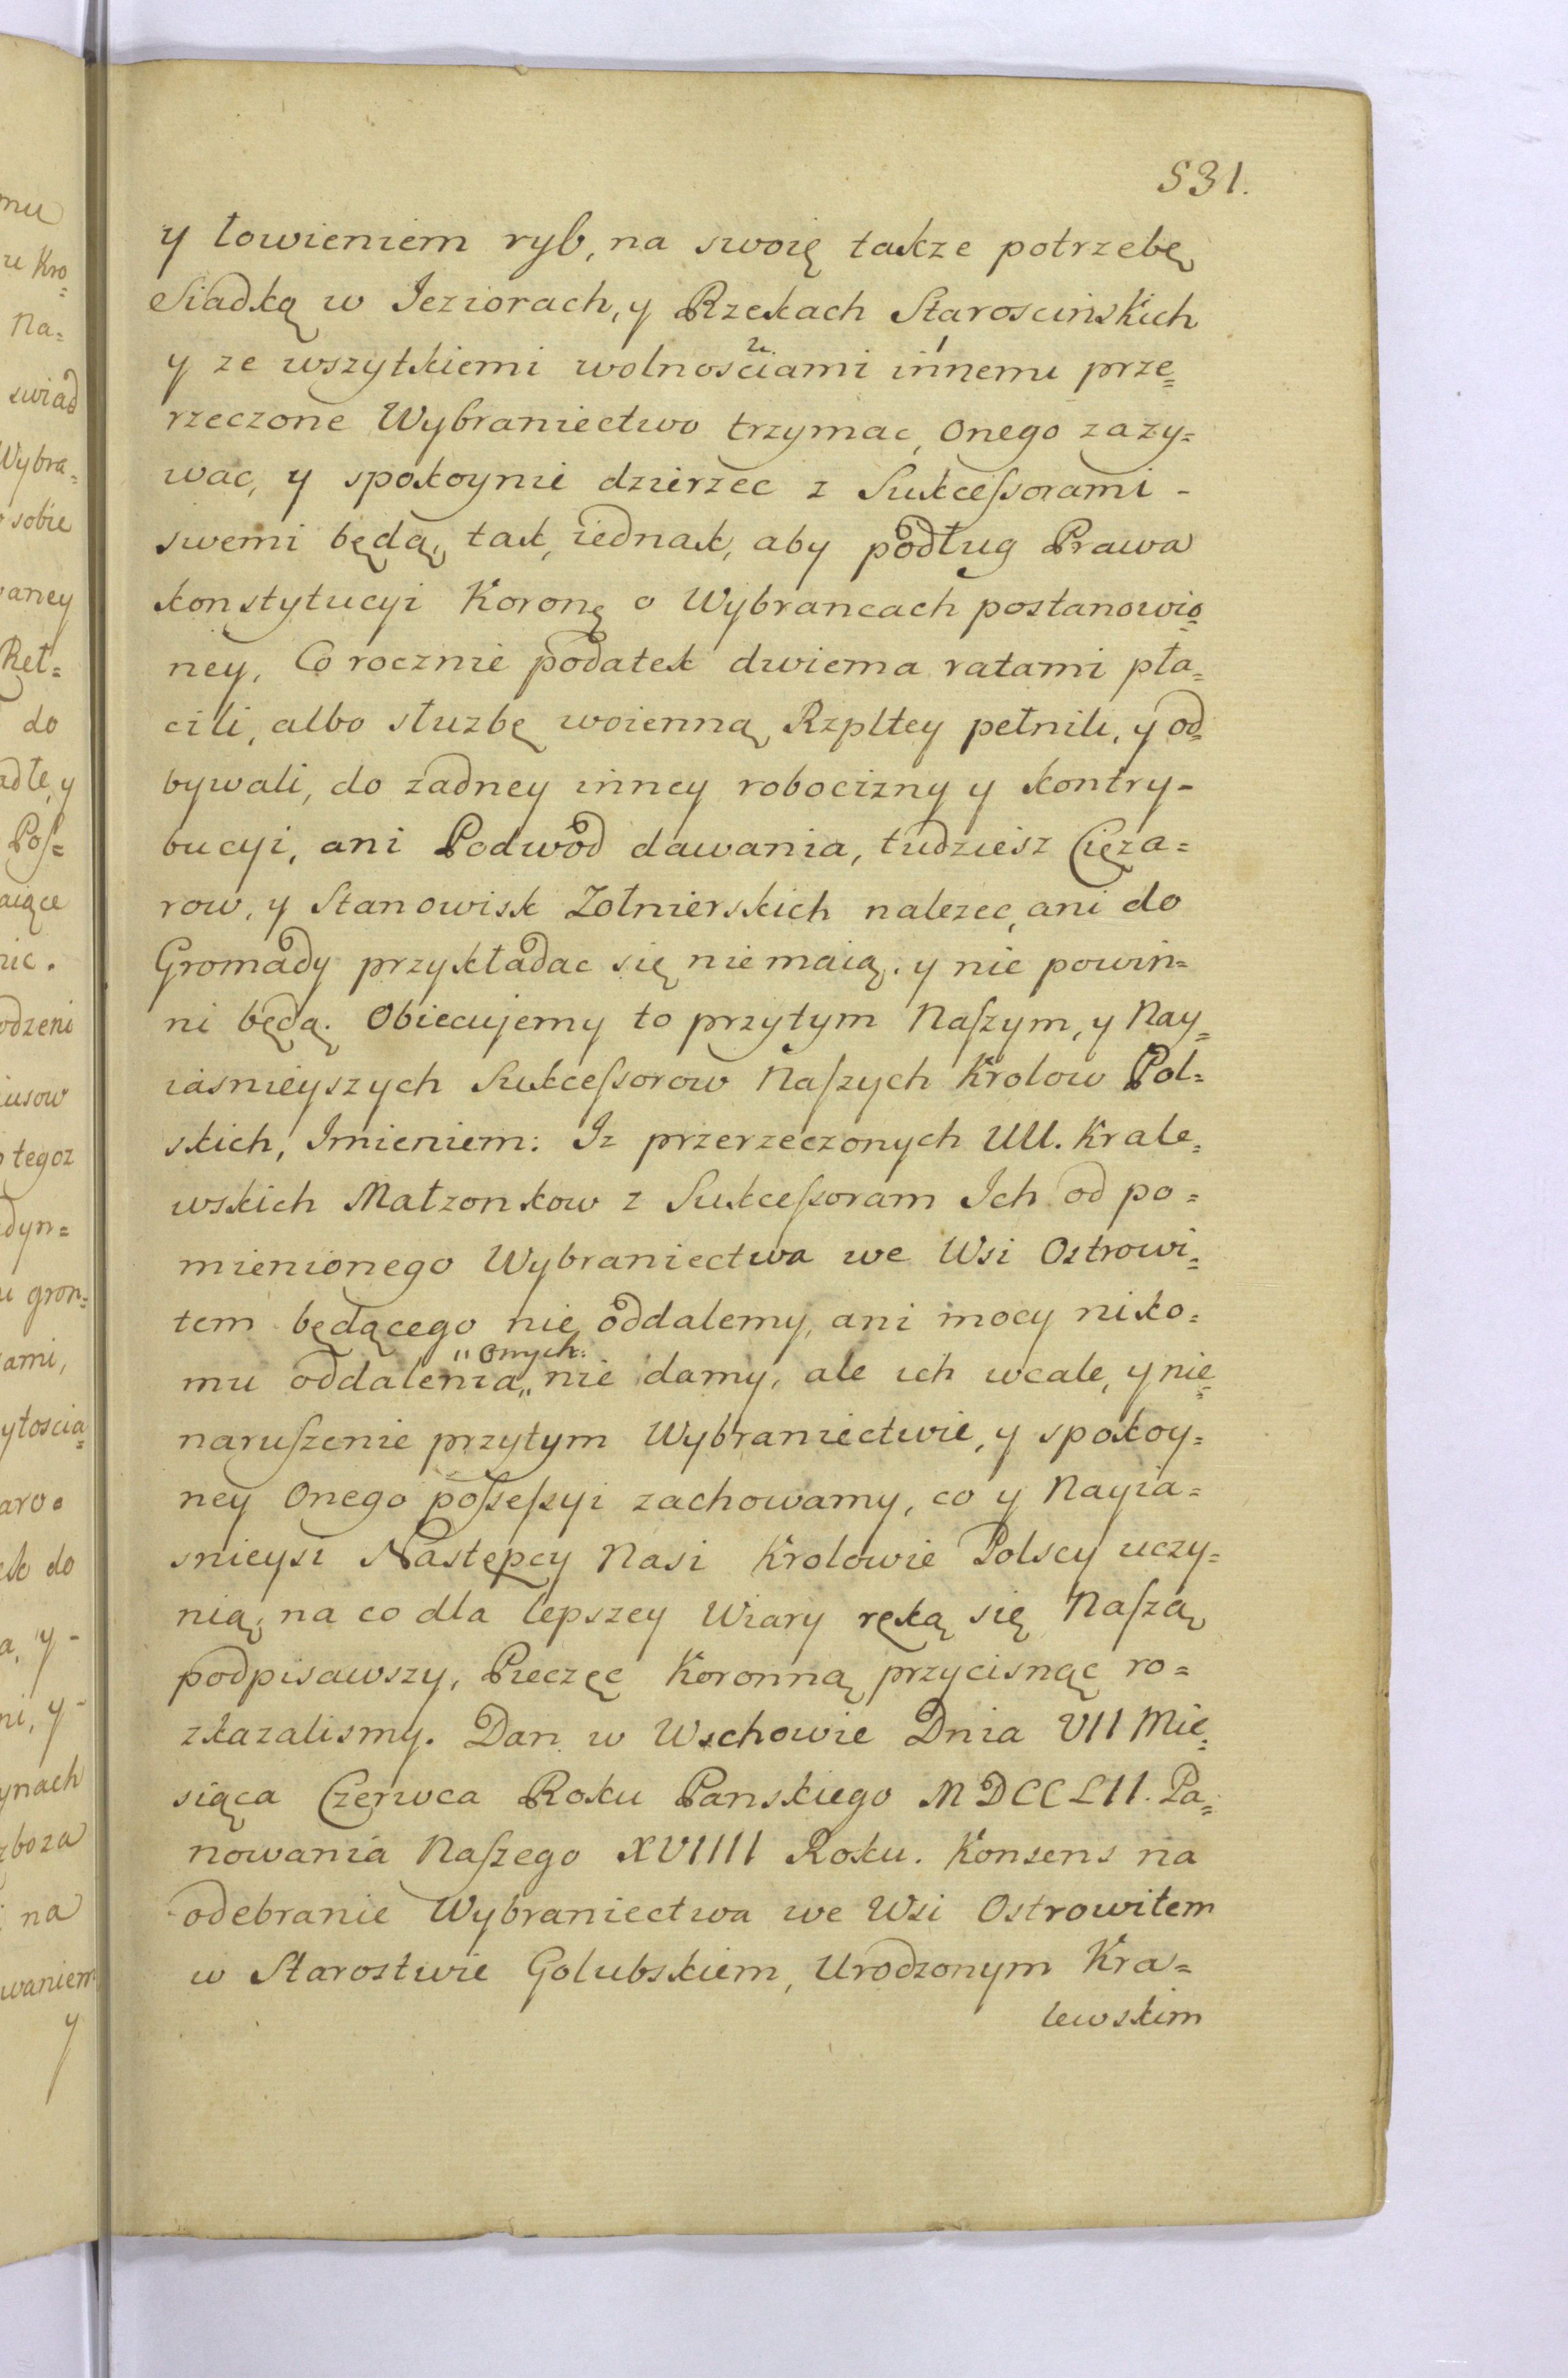 531.
y łowieniem ryb, na swoię takze potrzebę
Siadką w Ieziorach, y Rzekach Staroscinskich
y ze wszytkiemi wolnosciami 2 innemi 1 prze=
rzeczone Wybraniectwo trzymac, onego zazy=
wac, y spokoynie dzierzec z Sukceſsorami -
swemi będą, tak iednak, aby podług Prawa
konstytucyi Koronę o Wybrancach postanowio=
ney, Co rocznie podatek dwiema ratami pła=
cili, albo słuzbę woienną Rzpltey pełnili, y od=
bywali, do zadney inney robocizny y kontry-
bucyi, ani Podwod dawania, tudziesz Cięza=
row, y Stanowisk Zołnierskich nalezec, ani do
Gromady przykładac się nie maią. y nie powin=
ni będą. Obiecujemy to przytym Naſzym, y Nay=
iasnieyszych Sukceſsorow Naſzych Krolow Pol=
skich, Imieniem: Iz przerzeczonych UU. Krale=
wskich Małzonkow z Sukceſsoram Ich od po=
mienionego Wybraniectwa we Wsi Ostrowi=
tem będącego nie oddalemy, ani mocy niko=
mu oddalenia „onych„ nie damy, ale ich wcale, y nie=
naruſzenie przytym Wybraniectwie, y spokoy=
ney Onego poſseſsyi zachowamy, co y Nayia=
snieysi Następcy Nasi Krolowie Polscy uczy=
nią, na co dla lepszey Wiary ręką się Naſzą
podpisawszy, Pieczęc Koronną przycisnąc ro=
zkazalismy. Dan w Wschowie Dnia VII Mie=
siąca Czerwca Roku Panskiego MDCCLII. Pa=
nowania Naſzego XVIIII Roku. Konsens na
odebranie Wybraniectwa we Wsi Ostrowitem
w Starostwie Golubskiem, Urodzonym Kra=
lewskim
mu
Kro=
Na=
swiad
Wybra=
sobie
do
Poſ=
tegoz
gron=
ami,
do
zboza
na
y